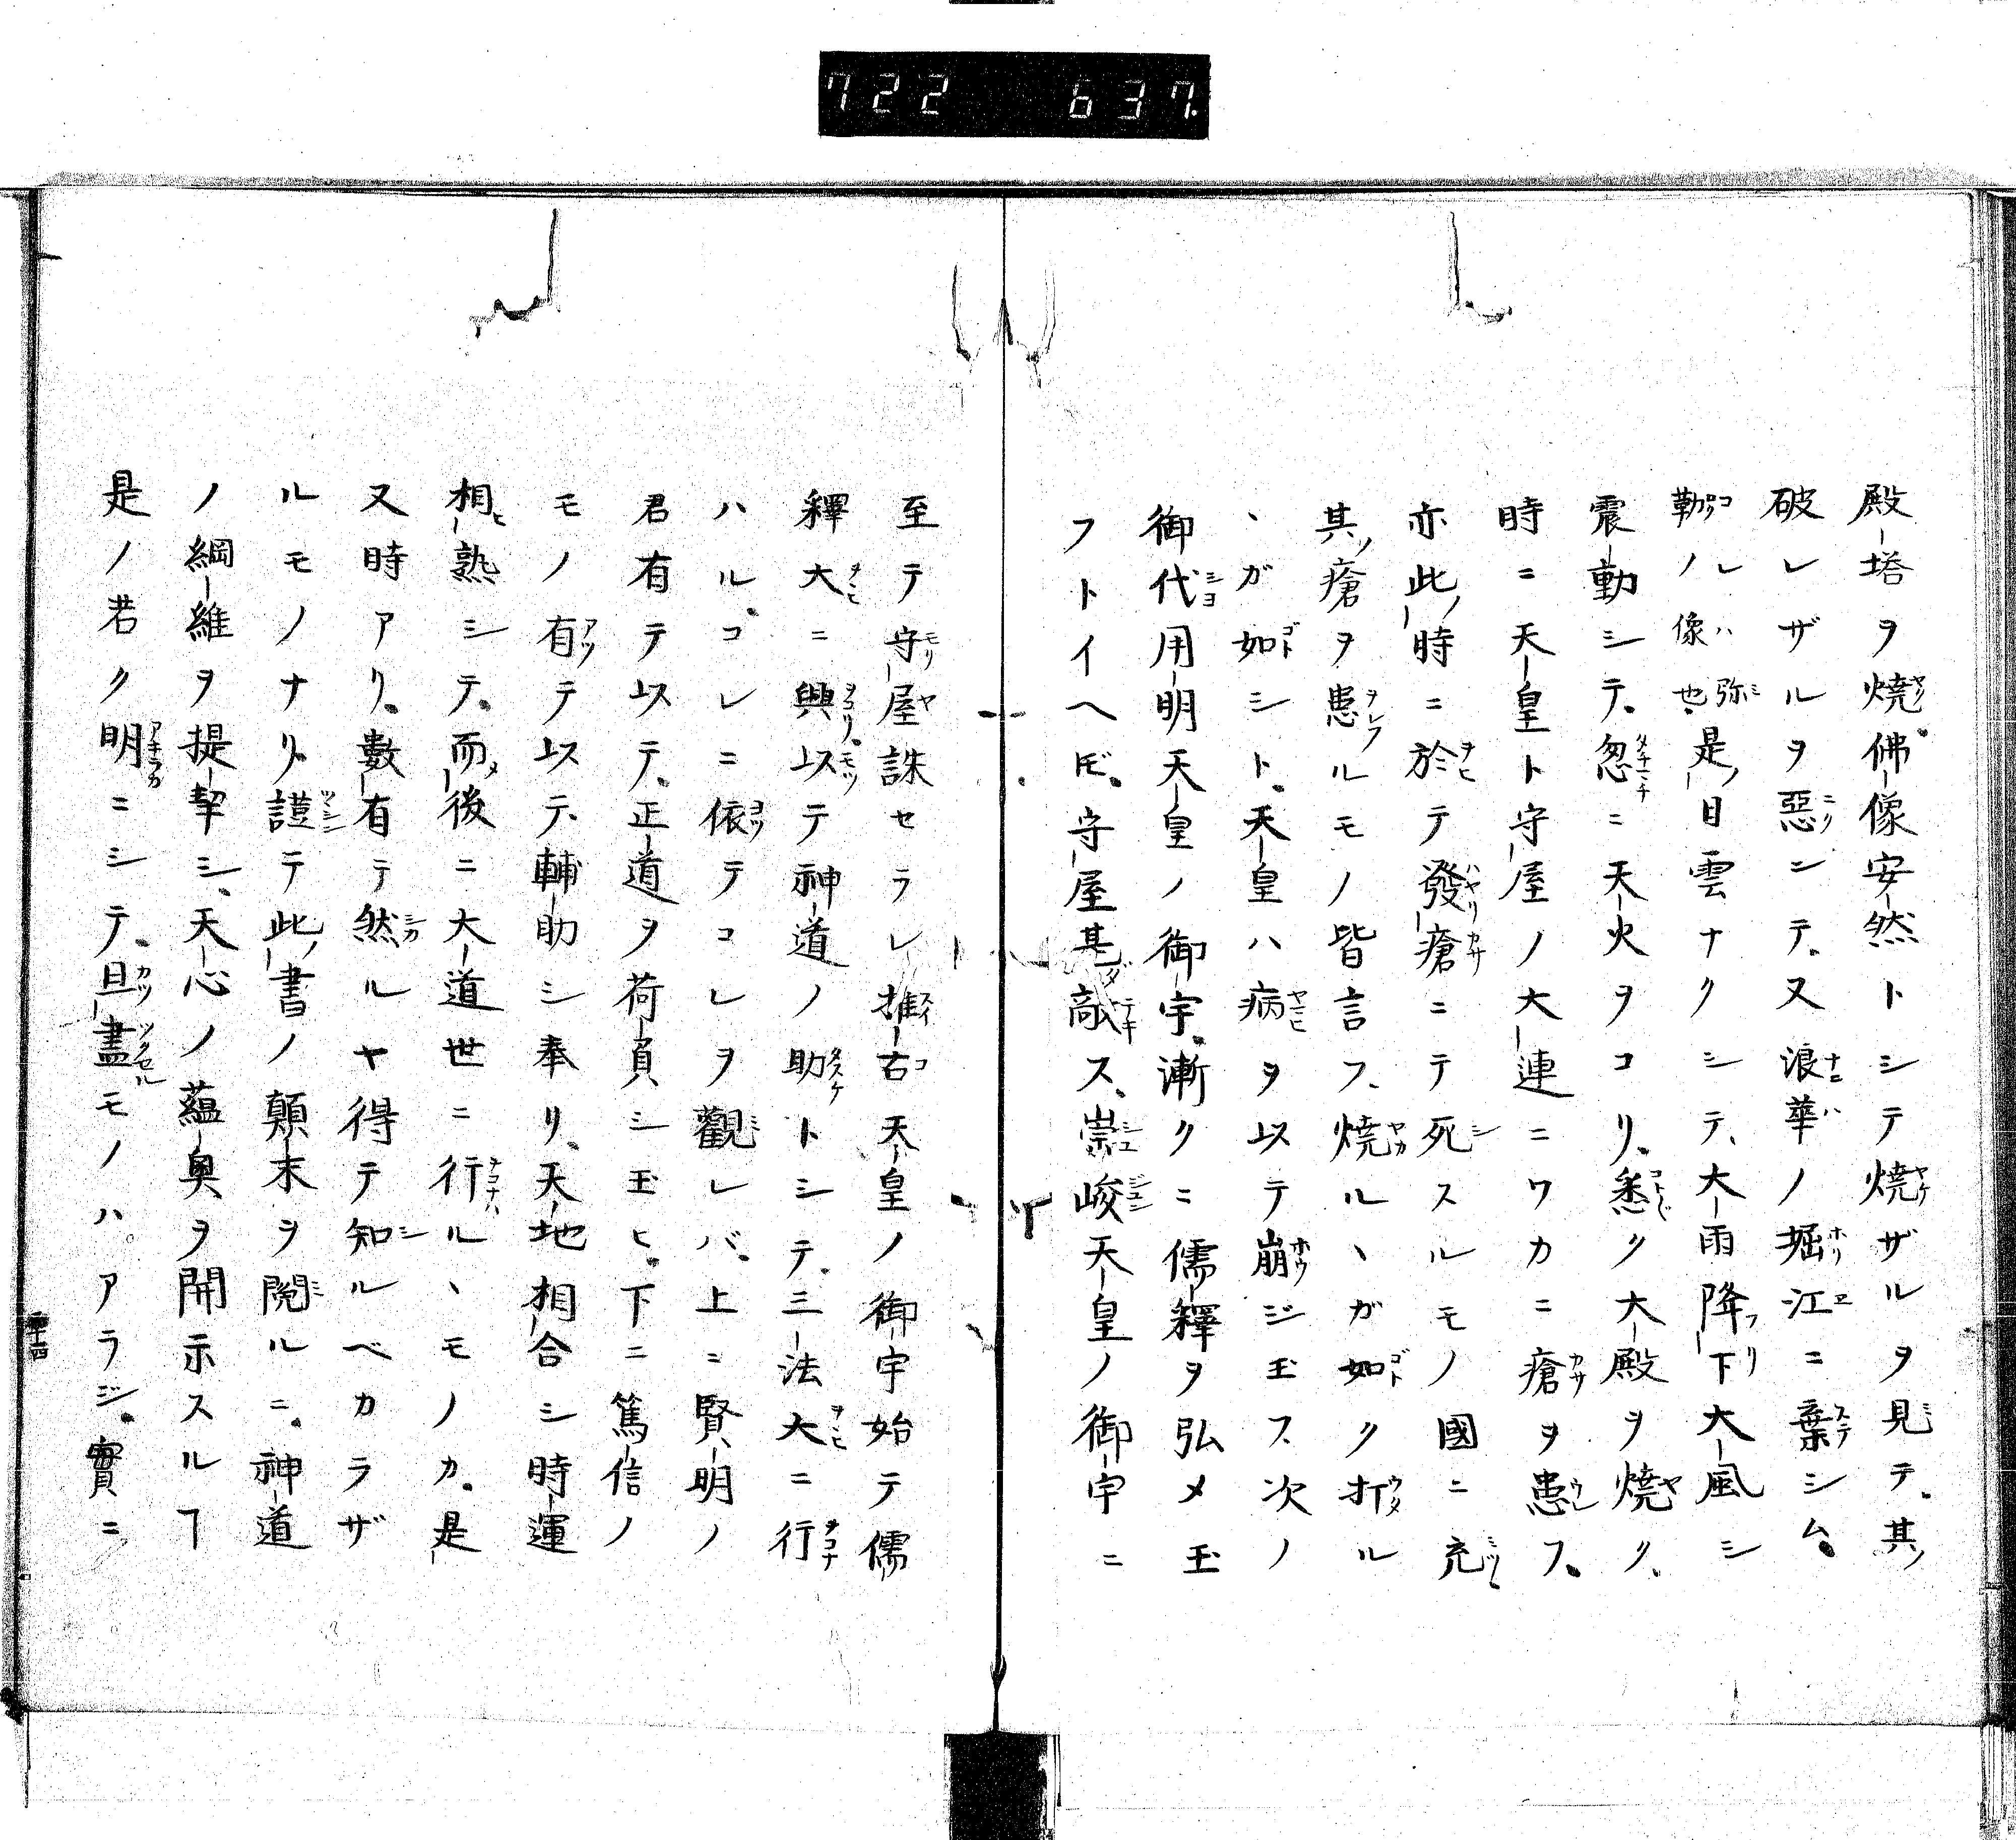 722 637.
殿塔ヲ燒。佛像安然トシテ燒ザルヲ見テ。其
破レザルヲ惡ンテ。又浪華ノ堀江ニ棄シム。
コレハ弥勒ノ像也。是日雲ナクシテ、大雨降下大風シ
震動シテ。忽ニ天火ヲコリ、悉ク大殿ヲ燒ク、
時ニ天皇ト守屋ノ大連ニワカニ瘡ヲ患フ。
亦此時ニ於テ發瘡ニテ死スルモノ國ニ充
其瘡ヲ患ルモノ皆言フ、燒ルヽガ如ク打ル
ヽガ如シト。天皇ハ病ヲ以テ崩ジ玉フ次ノ
御代用明天皇ノ御宇。漸クニ儒釋ヲ弘メ玉
フトイヘ𪜈。守屋甚敵ス、崇峻天皇ノ御宇ニ
至テ守屋誅セラレ推古天皇ノ御宇始テ儒
釋大ニ興。以テ神道ノ助トシテ、三法大ニ行
ハル。コレニ依テコレヲ觀レバ。上ニ賢明ノ
君有テ以テ。正道ヲ荷負シ玉ヒ。下ニ篤信ノ
モノ有テ以テ、輔助シ奉リ、天地相合シ時運
相熟シテ。而後ニ大道世ニ行ルヽモノカ。是
又時アリ。數有テ然ルヤ得テ知ルベカラザ
ルモノナリ。謹テ此書ノ顛末ヲ閲ルニ。神道
ノ綱維ヲ提挈シ、天心ノ蘊奥ヲ開示スルヿ
是ノ若ク明ニシテ。且盡モノハアラジ。實ニ